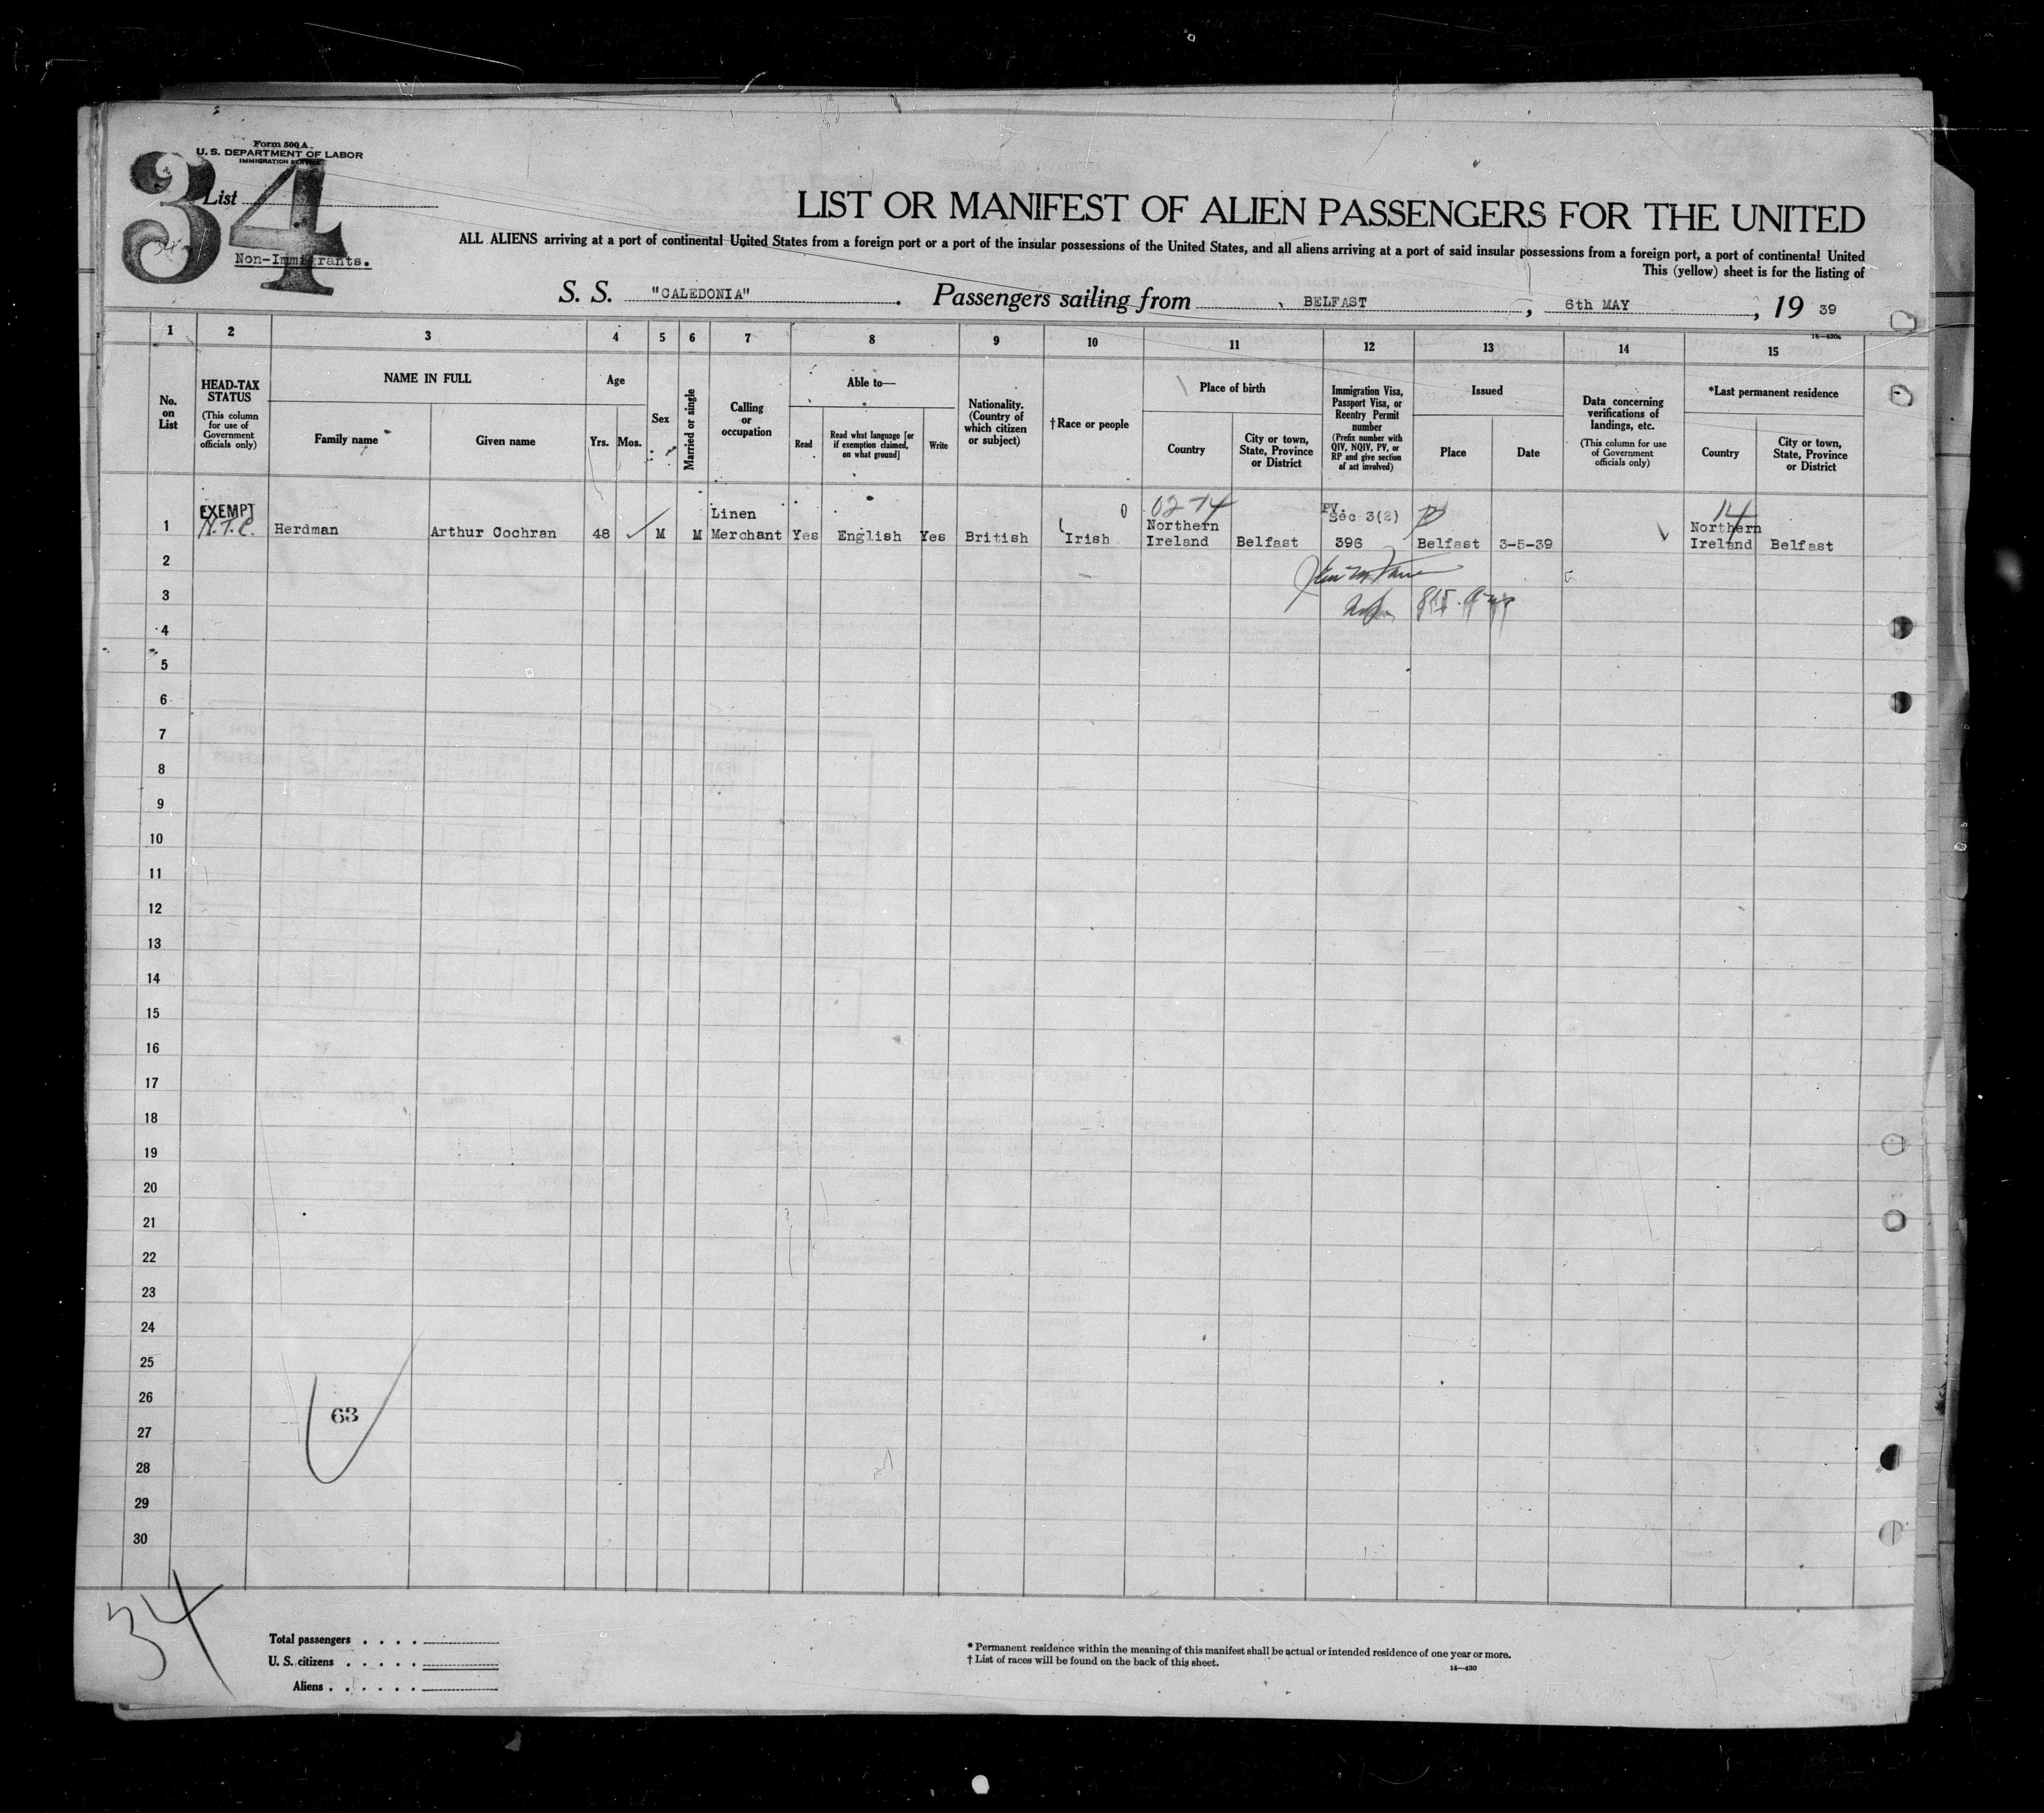 Form 500 A
U. S. DEPARTMENT OF LABOR
IMMIGRATION SERVICE
34
List
Non-Immigrants.
LIST OR MANIFEST OF ALIEN PASSENGERS FOR THE UNITED
ALL ALIENS arriving at a port of continental United States from a foreign port or a port of the insular possessions of the United States, and all aliens arriving at a port of said insular possessions from a foreign port, a port of continental United
This (yellow) sheet is for the listing of
S. S. "CALEDONIA". Passengers sailing from BELFAST, 6th MAY, 19 39
14—430a
1 2 3 4 5 6 7 8 9 10 11 12 13 14 15
No. on List
HEAD-TAX STATUS
(This column for use of Government officials only)
NAME IN FULL
Family name
Given name
Age
Yrs. Mos.
Sex
Married or single
Calling or occupation
Able to—
Read
Read what language [or if exemption claimed, on what ground]
Write
Nationality. (Country of which citizen or subject)
†Race or people
Place of birth
Country
City or town, State, Province or District
Immigration Visa, Passport Visa, or Reentry Permit number
(Prefix number with QIV, NQIV, PV, or RP and give section of act involved)
Issued
Place
Date
Data concerning verifications of landings, etc.
(This column for use of Government officials only)
*Last permanent residence
Country
City or town, State, Province or District
EXEMPT 02-14 PV. 14
Linen Sec 3(2)
1 N.T.C. Herdman Arthur Cochran 48 M M Merchant Yes English Yes British Irish Northern Ireland Belfast 396 Belfast 3-5-39 Northern Ireland Belfast
2
3
4
5
6
7
8
9
10
11
12
13
14
15
16
17
18
19
20
21
22
23
24
25
26
63
27
28
29
30
34
Total passengers . . . .
U. S. citizens . . . . .
Aliens . . . . . .
* Permanent residence within the meaning of this manifest shall be actual or intended residence of one year or more.
† List of races will be found on the back of this sheet.
14—430